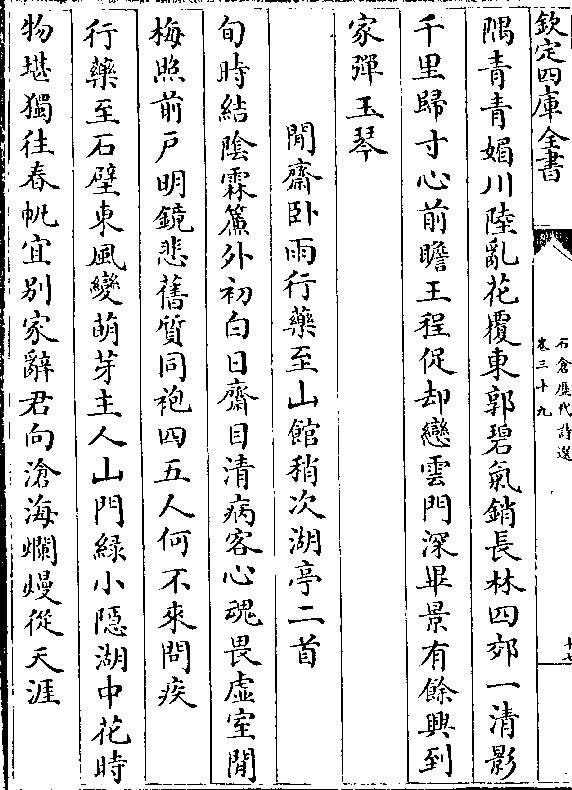 欽定四庫全書
石倉歷代詩選
卷三十九
十七
隅青青媚川陸亂花覆東郭碧氣銷長林四郊一清影
千里歸寸心前瞻王程促却戀雲門深畢景有餘興到
家彈玉琴
閒齋卧雨行藥至山館稍次湖亭二首
旬時結陰霖簾外初白日齋目清病客心魂畏虛室閒
梅照前戶明鏡悲舊質同袍四五人何不來問疾
行藥至石壁東風變萌芽主人山門綠小隱湖中花時
物堪獨往春帆宜別家辭君向滄海爛熳從天涯